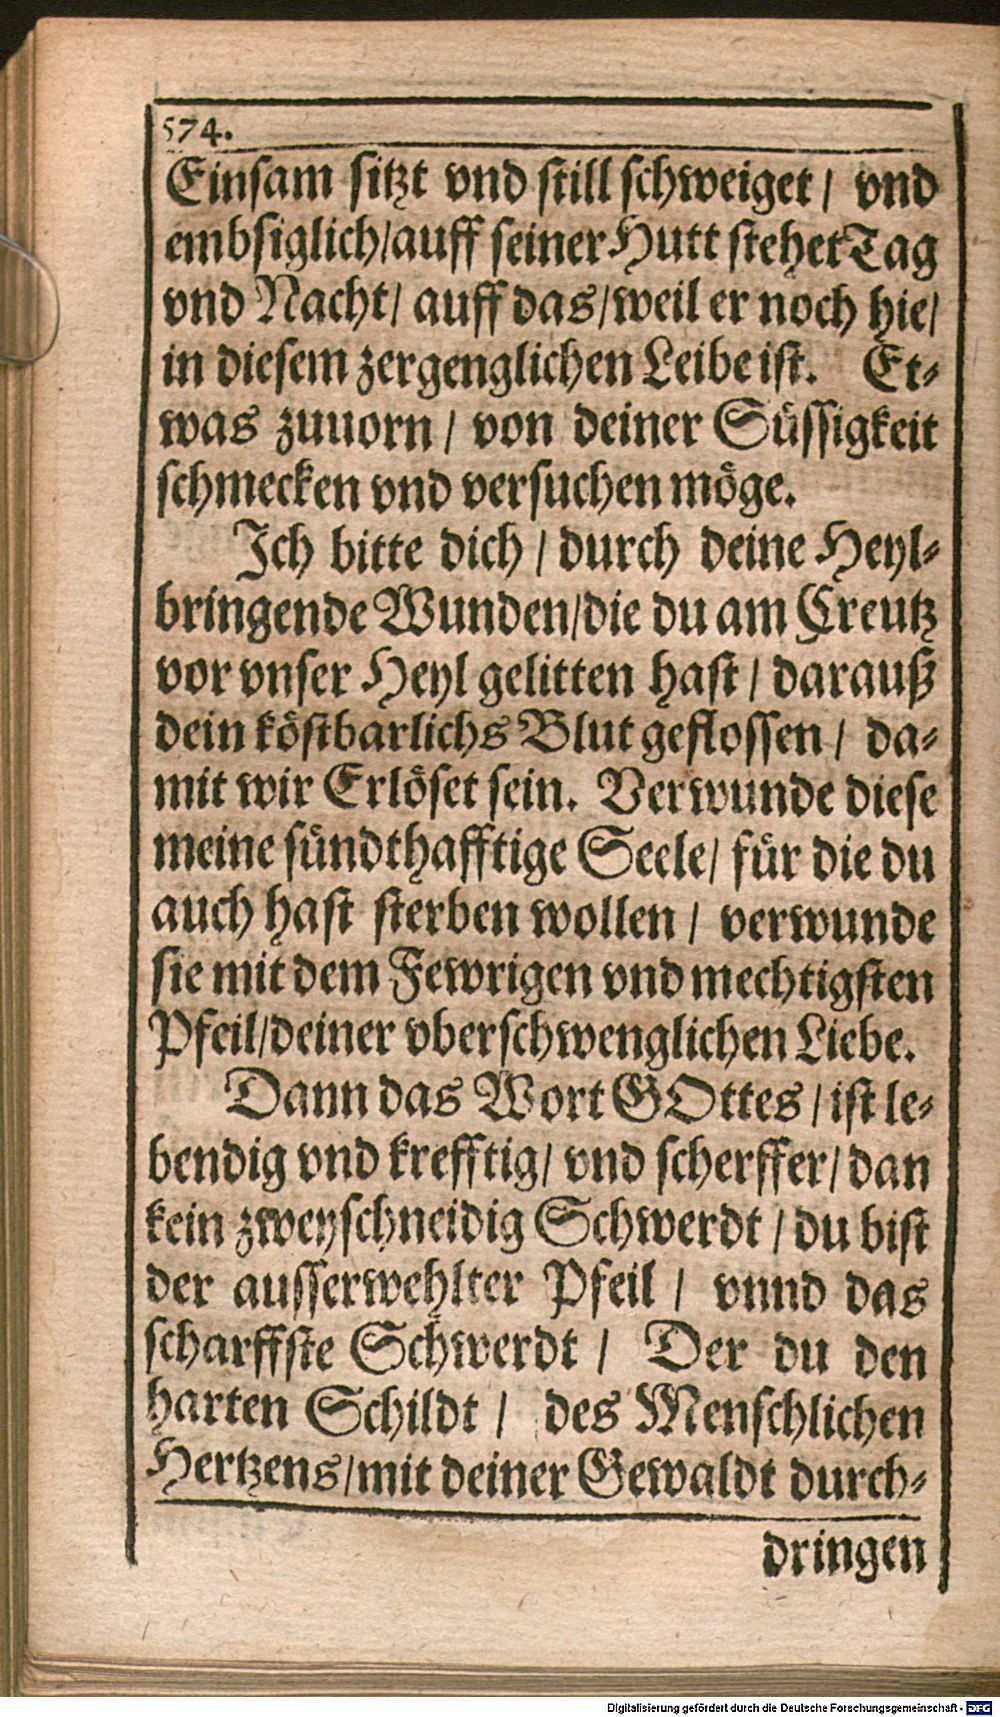 574.
Einsam sitzt vnd still schweiget / vnd
embsiglich/auff seiner Hutt stehet Tag
vnd Nacht/ auff das/weil er noch hie/
in diesem zergenglichen Leibe ist. Et-
was zuuorn / von deiner Süssigkeit
schmecken vnd versuchen möge.
Ich bitte dich / durch deine Heyl-
bringende Wunden/die du am Creutz
vor vnser Heyl gelitten hast / darauß
dein köstbarlichs Blut geflossen / da-
mit wir Erlöset sein. Verwunde diese
meine sündthafftige Seele/ für die du
auch hast sterben wollen / verwunde
sie mit dem Fewrigen vnd mechtigsten
Pfeil/deiner vberschwenglichen Liebe.
Dann das Wort GOttes / ist le-
bendig vnd krefftig/ vnd scherffer/ dan
kein zweyschneidig Schwerdt / du bist
der ausserwehlter Pfeil / vnnd das
scharffste Schwerdt / Der du den
harten Schildt / des Menschlichen
Hertzens/mit deiner Gewaldt durch-
dringen
Digitalisierung gefördert durch die Deutsche Forschungsgemeinschaft - DFG